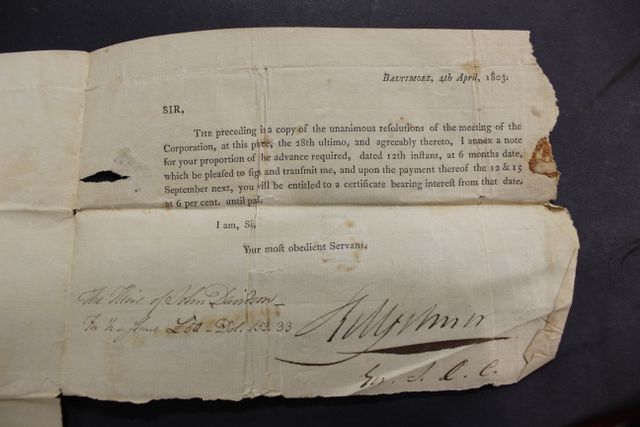 BALTIMORE, 4th April, 1803.
SIR,
THE preceding is a copy of the unanimous resolutions of the meeting of the
Corporation, at this place, the 28th ultimo, and agreeably thereto, I annex a note
for your proportion of the advance required, dated 12th inſtant, at 6 months date,
which be pleaſed to ſign and tranſmit me, and upon the payment thereof the 12 & 15
September next, you will be entitled to a certificate bearing intereſt from that date.
at 6 per cent. until pai.
I am, Si,
Your moſt obedient Servant,
The Heirs of John Davidson
For £50 Dol. 133.33
Gov. P. C.